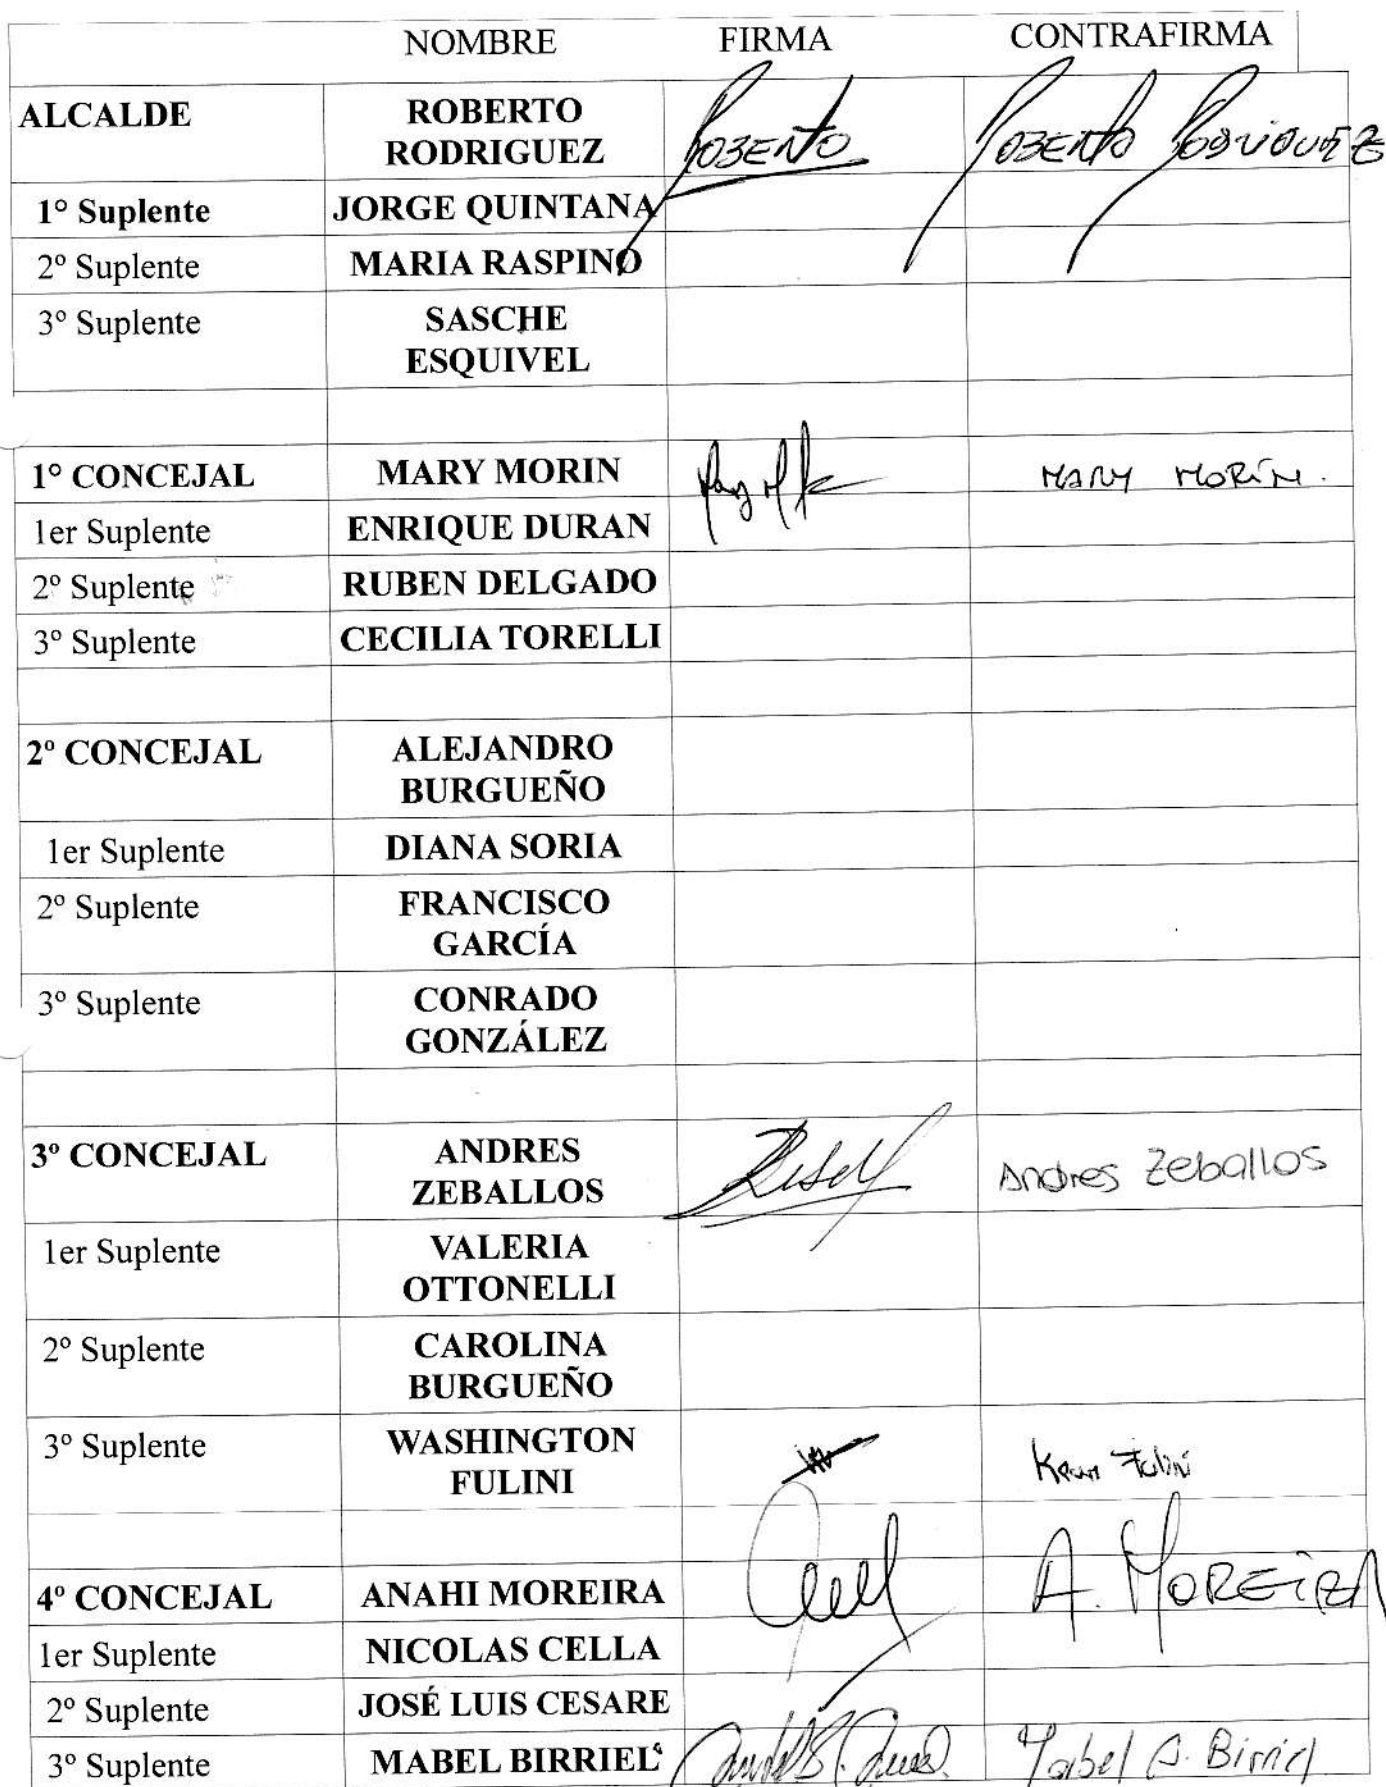 NOMBRE FIRMA CONTRAFIRMA
ALCALDE ROBERTO RODRIGUEZ ROBERTO ROBERTO RODRIGUEZ
1° Suplente JORGE QUINTANA
2º Suplente MARIA RASPINO
3º Suplente SASCHE ESQUIVEL
1° CONCEJAL MARY MORIN MARY MORÍN.
1er Suplente ENRIQUE DURAN
2º Suplente RUBEN DELGADO
3º Suplente CECILIA TORELLI
2º CONCEJAL ALEJANDRO BURGUEÑO
1er Suplente DIANA SORIA
2º Suplente FRANCISCO GARCÍA
3º Suplente CONRADO GONZÁLEZ
3º CONCEJAL ANDRES ZEBALLOS Andres Zeballos
1er Suplente VALERIA OTTONELLI
2º Suplente CAROLINA BURGUEÑO
3º Suplente WASHINGTON FULINI Fulini
4º CONCEJAL ANAHI MOREIRA A. MOREIRA
1er Suplente NICOLAS CELLA
2º Suplente JOSÉ LUIS CESARE
3º Suplente MABEL BIRRIEL Mabel S. Birriel